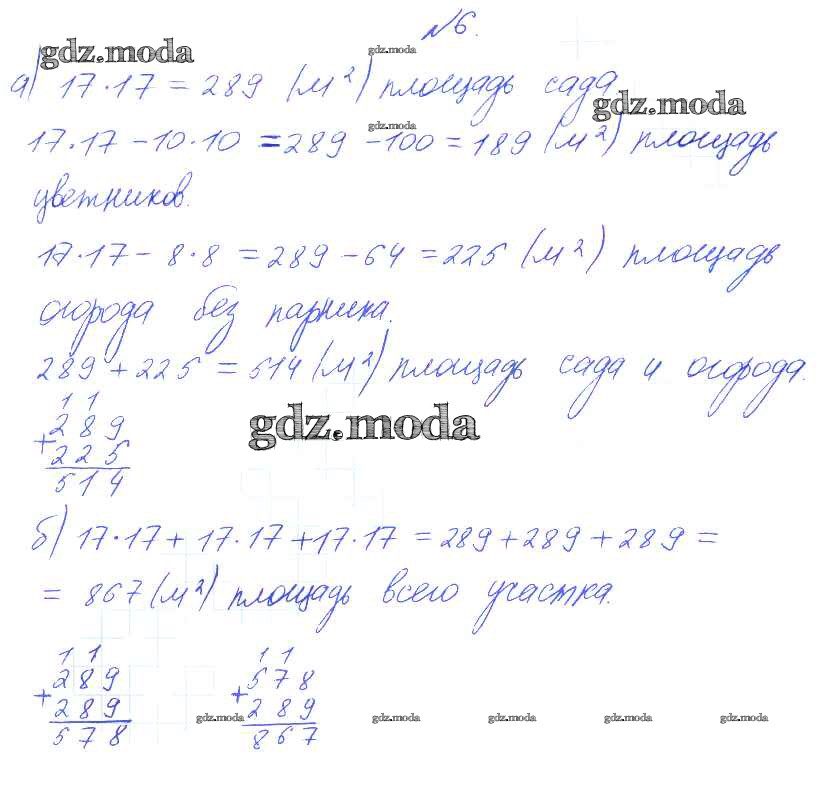 №6.
gdz.moda
gdz.moda
а) 17·17 = 289 (м²) площадь сада
gdz.moda
gdz.moda
17·17 - 10·10 = 289 - 100 = 189 (м²) площадь
цветников.
17·17 - 8·8 = 289 - 64 = 225 (м²) площадь
огорода без парника.
289 + 225 = 514 (м²) площадь сада и огорода.
1 1
+ 289
225
514
gdz.moda
б) 17·17 + 17·17 + 17·17 = 289 + 289 + 289 =
= 867 (м²) площадь всего участка.
1 1
+ 289
289
578
1 1
+ 578
289
867
gdz.moda gdz.moda gdz.moda gdz.moda gdz.moda